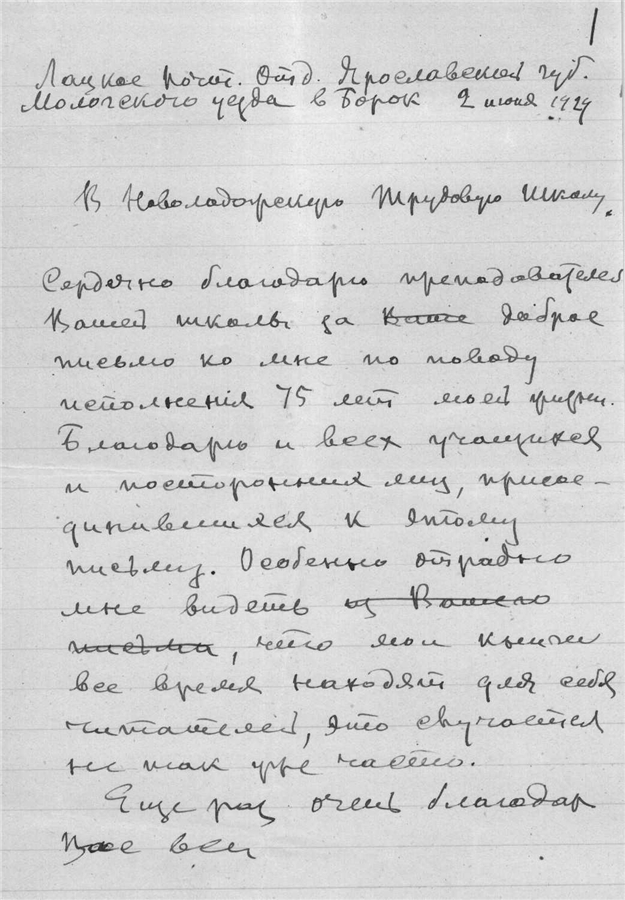 1
Лацкое почт. Отд. Ярославской губ.
Мологского уезда в Борок 2 июня 1929
В Новоладожскую трудовую школу.
Сердечно благодарю преподавателей
Вашей школы за Ваше доброе
письмо ко мне по поводу
исполнения 75 лет моей жизни.
Благодарю и всех учащихся
и посторонних лиц, присое-
динившихся к этому
письму. Особенно отрадно
мне видеть из Вашего
письма, что мои книги
все время находят для себя
читателей, это случается
не так уже часто.
Еще раз очень благодар
всем